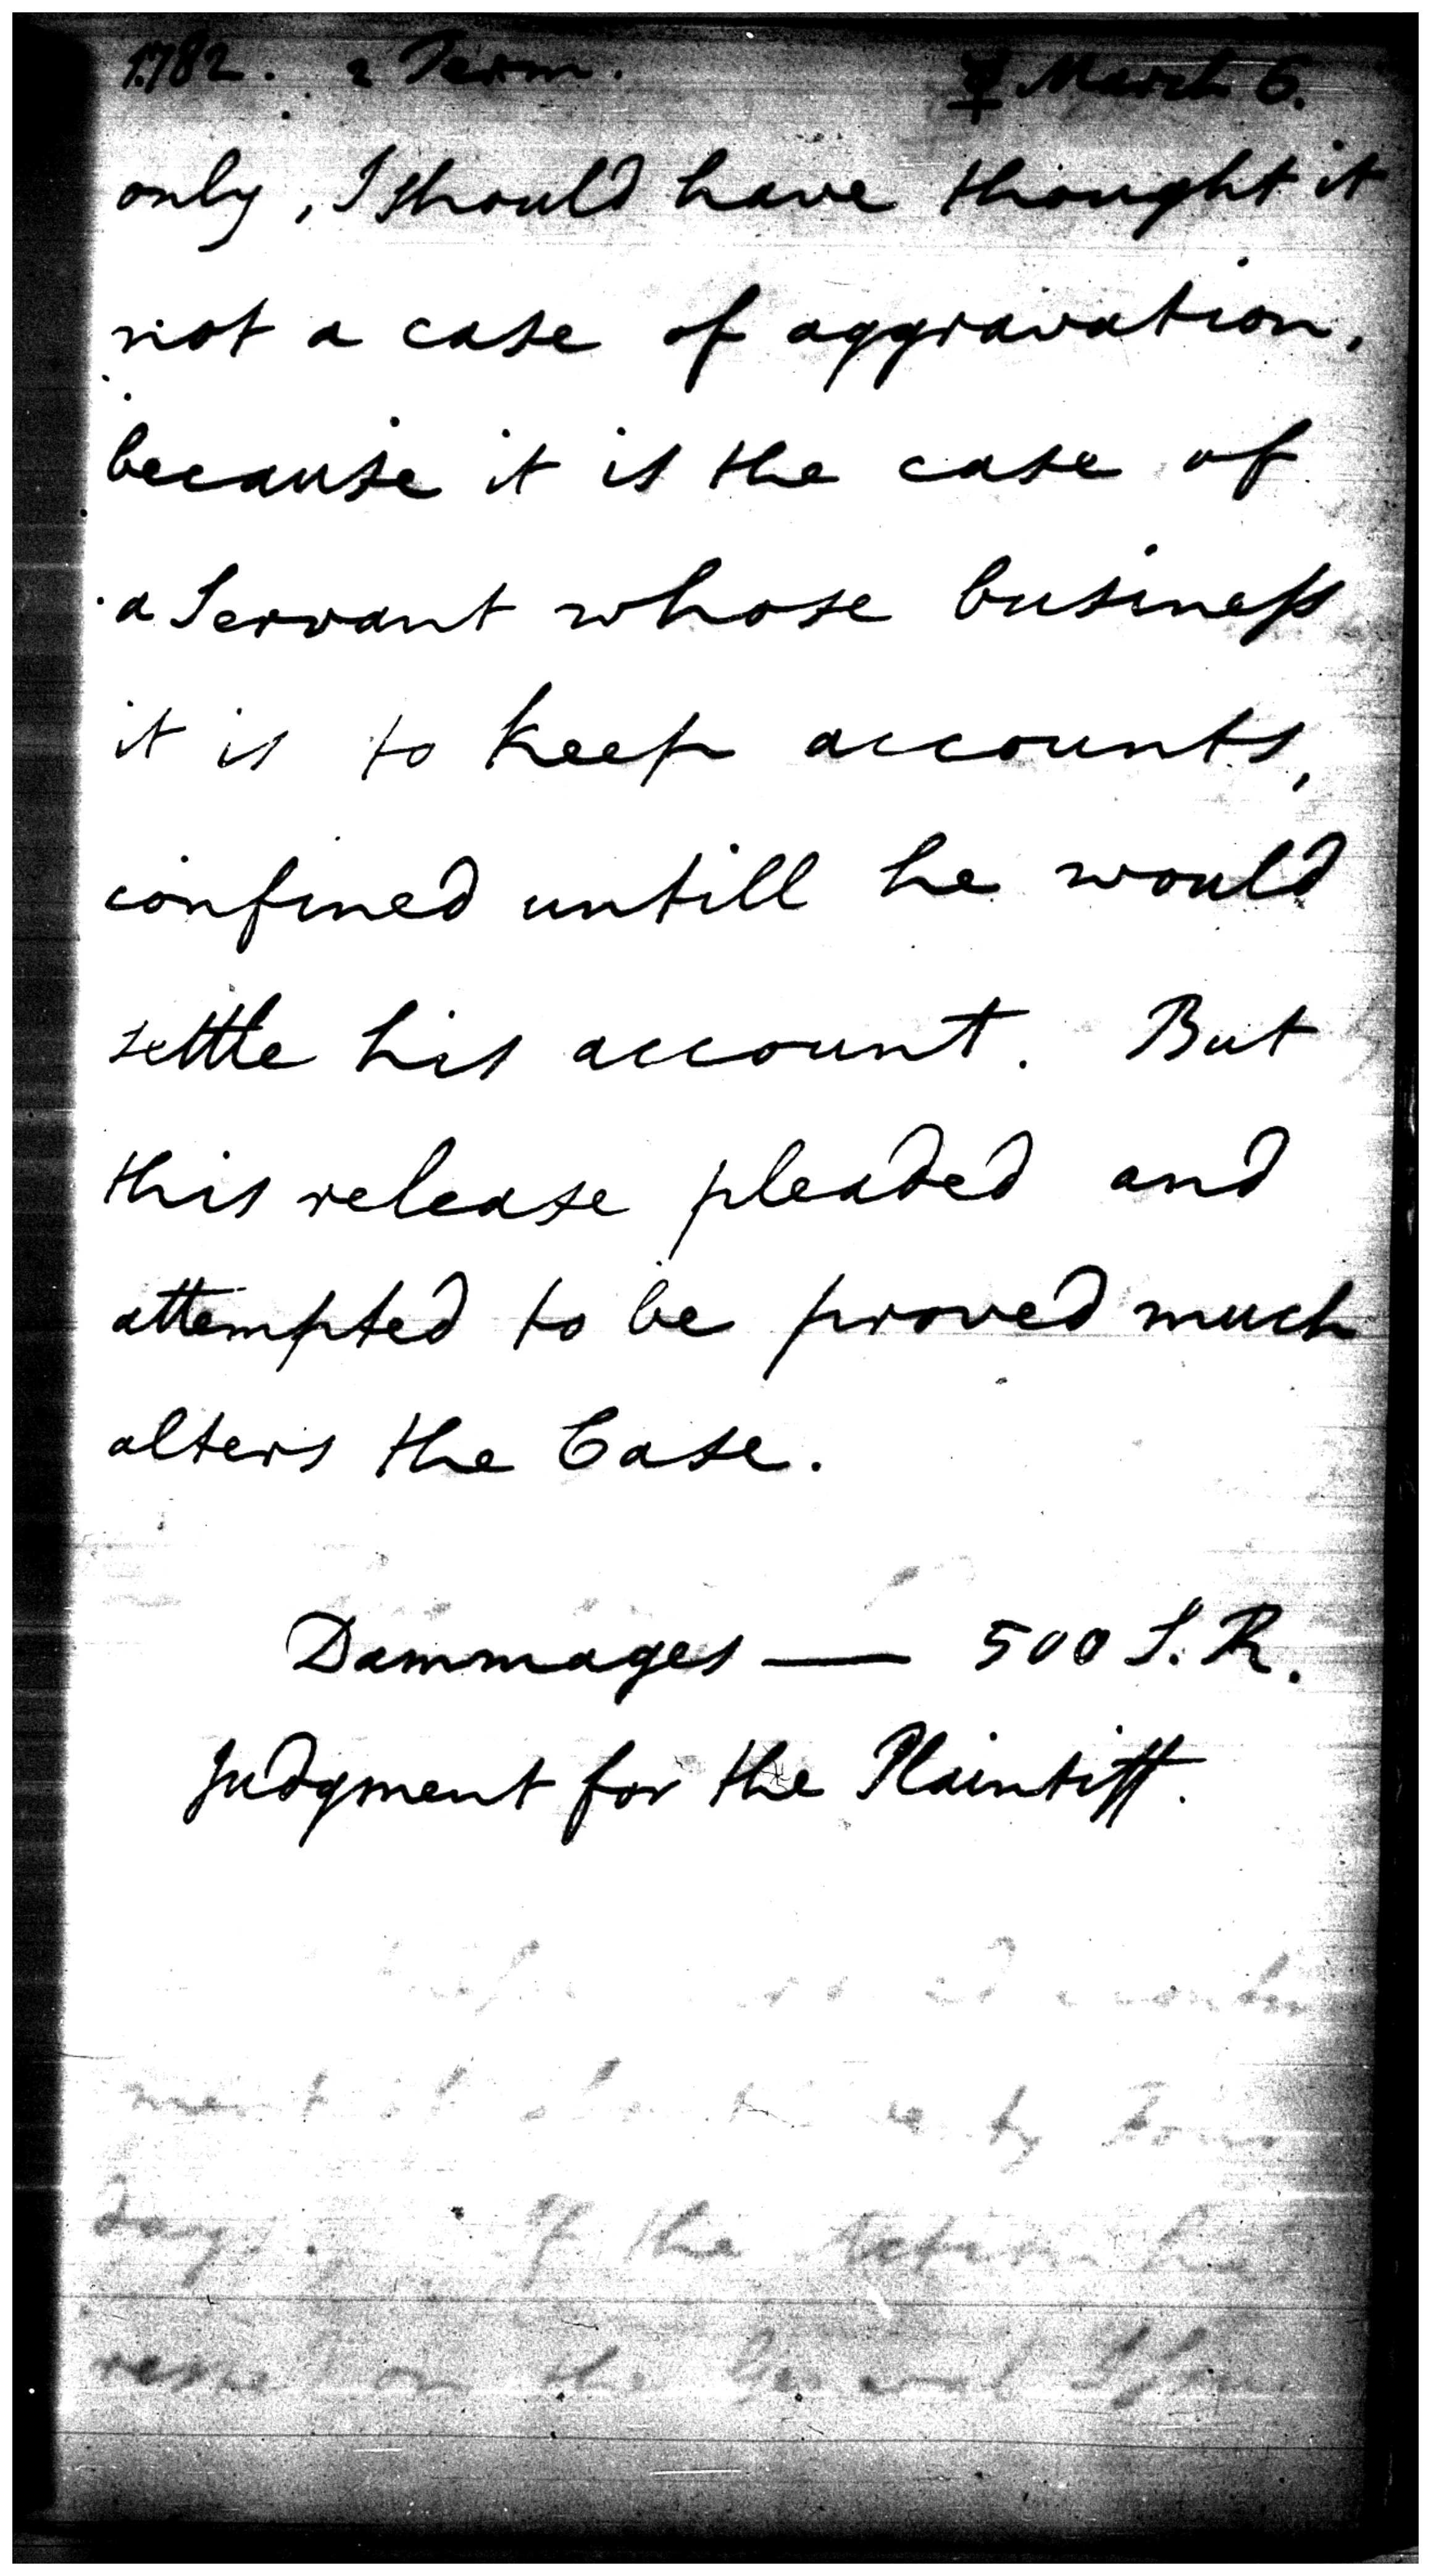 1782. 2 Term. ☿ March 6.
only, I should have thought it
not a case of aggravation,
because it is the case of
a Servant whose business
it is to keep accounts,
confined untill he would
settle his account. But
this release pleaded and
attempted to be proved much
alters the Case.
Dammages — 500 S. R.
Judgment for the Plaintiff.
days If the Action
on the